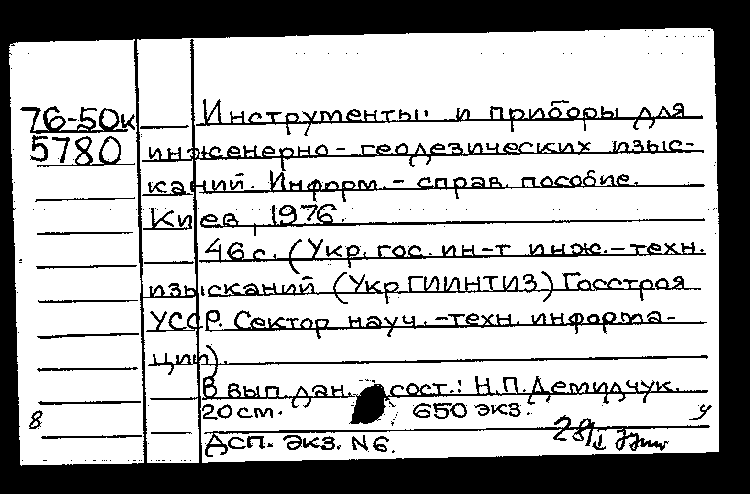 76-50к Инструменты и приборы для
5780 инженерно-геодезических изыс-
каний. Информ.-справ. пособие.
Киев, 1976.
46с. (Укр. гос. ин-т инж.-техн.
изысканий (УкрГИИНТИЗ) Госстроя
УССР. Сектор науч.-техн. информа-
ции).
В вып. дан. сост.: Н.П. Демидчук.
20см. 650 экз.
8 у
ДСП. Экз. N6.